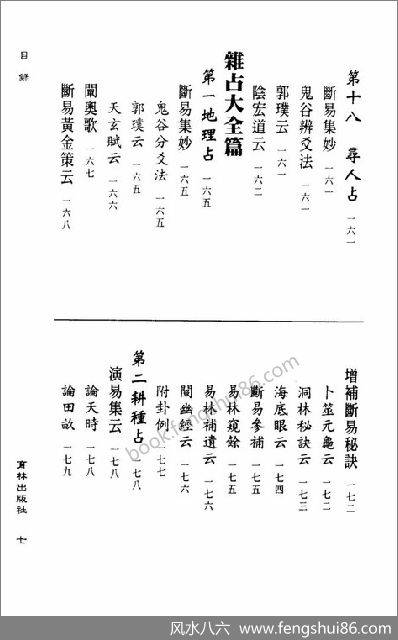 目錄
第十八 尋人占 一六一
斷易集妙 一六一
鬼谷辨爻法 一六一
郭璞云 一六一
陰宏道云 一六二
雜占大全篇
第一地理占 一六五
斷易集妙 一六五
鬼谷分爻法 一六五
郭璞云 一六五
天玄賦云 一六六
闡奧歌 一六七
斷易黃金策云 一六八
增補斷易秘訣 一七二
卜筮元龜云 一七二
洞林秘訣云 一七三
海底眼云 一七四
斷易參補 一七五
易林窺餘 一七五
易林補遺云 一七六
闡幽經云 一七六
附卦例 一七七
第二耕種占 一七八
演易集云 一七八
論天時 一七八
論田畝 一七九
育林出版社 十
book.fengshui86.com
风水八六 - www.fengshui86.com